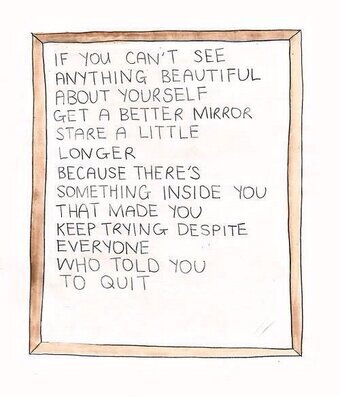 IF YOU CAN'T SEE
ANYTHING BEAUTIFUL
ABOUT YOURSELF
GET A BETTER MIRROR
STARE A LITTLE
LONGER
BECAUSE THERE'S
SOMETHING INSIDE YOU
THAT MADE YOU
KEEP TRYING DESPITE
EVERYONE
WHO TOLD YOU
TO QUIT